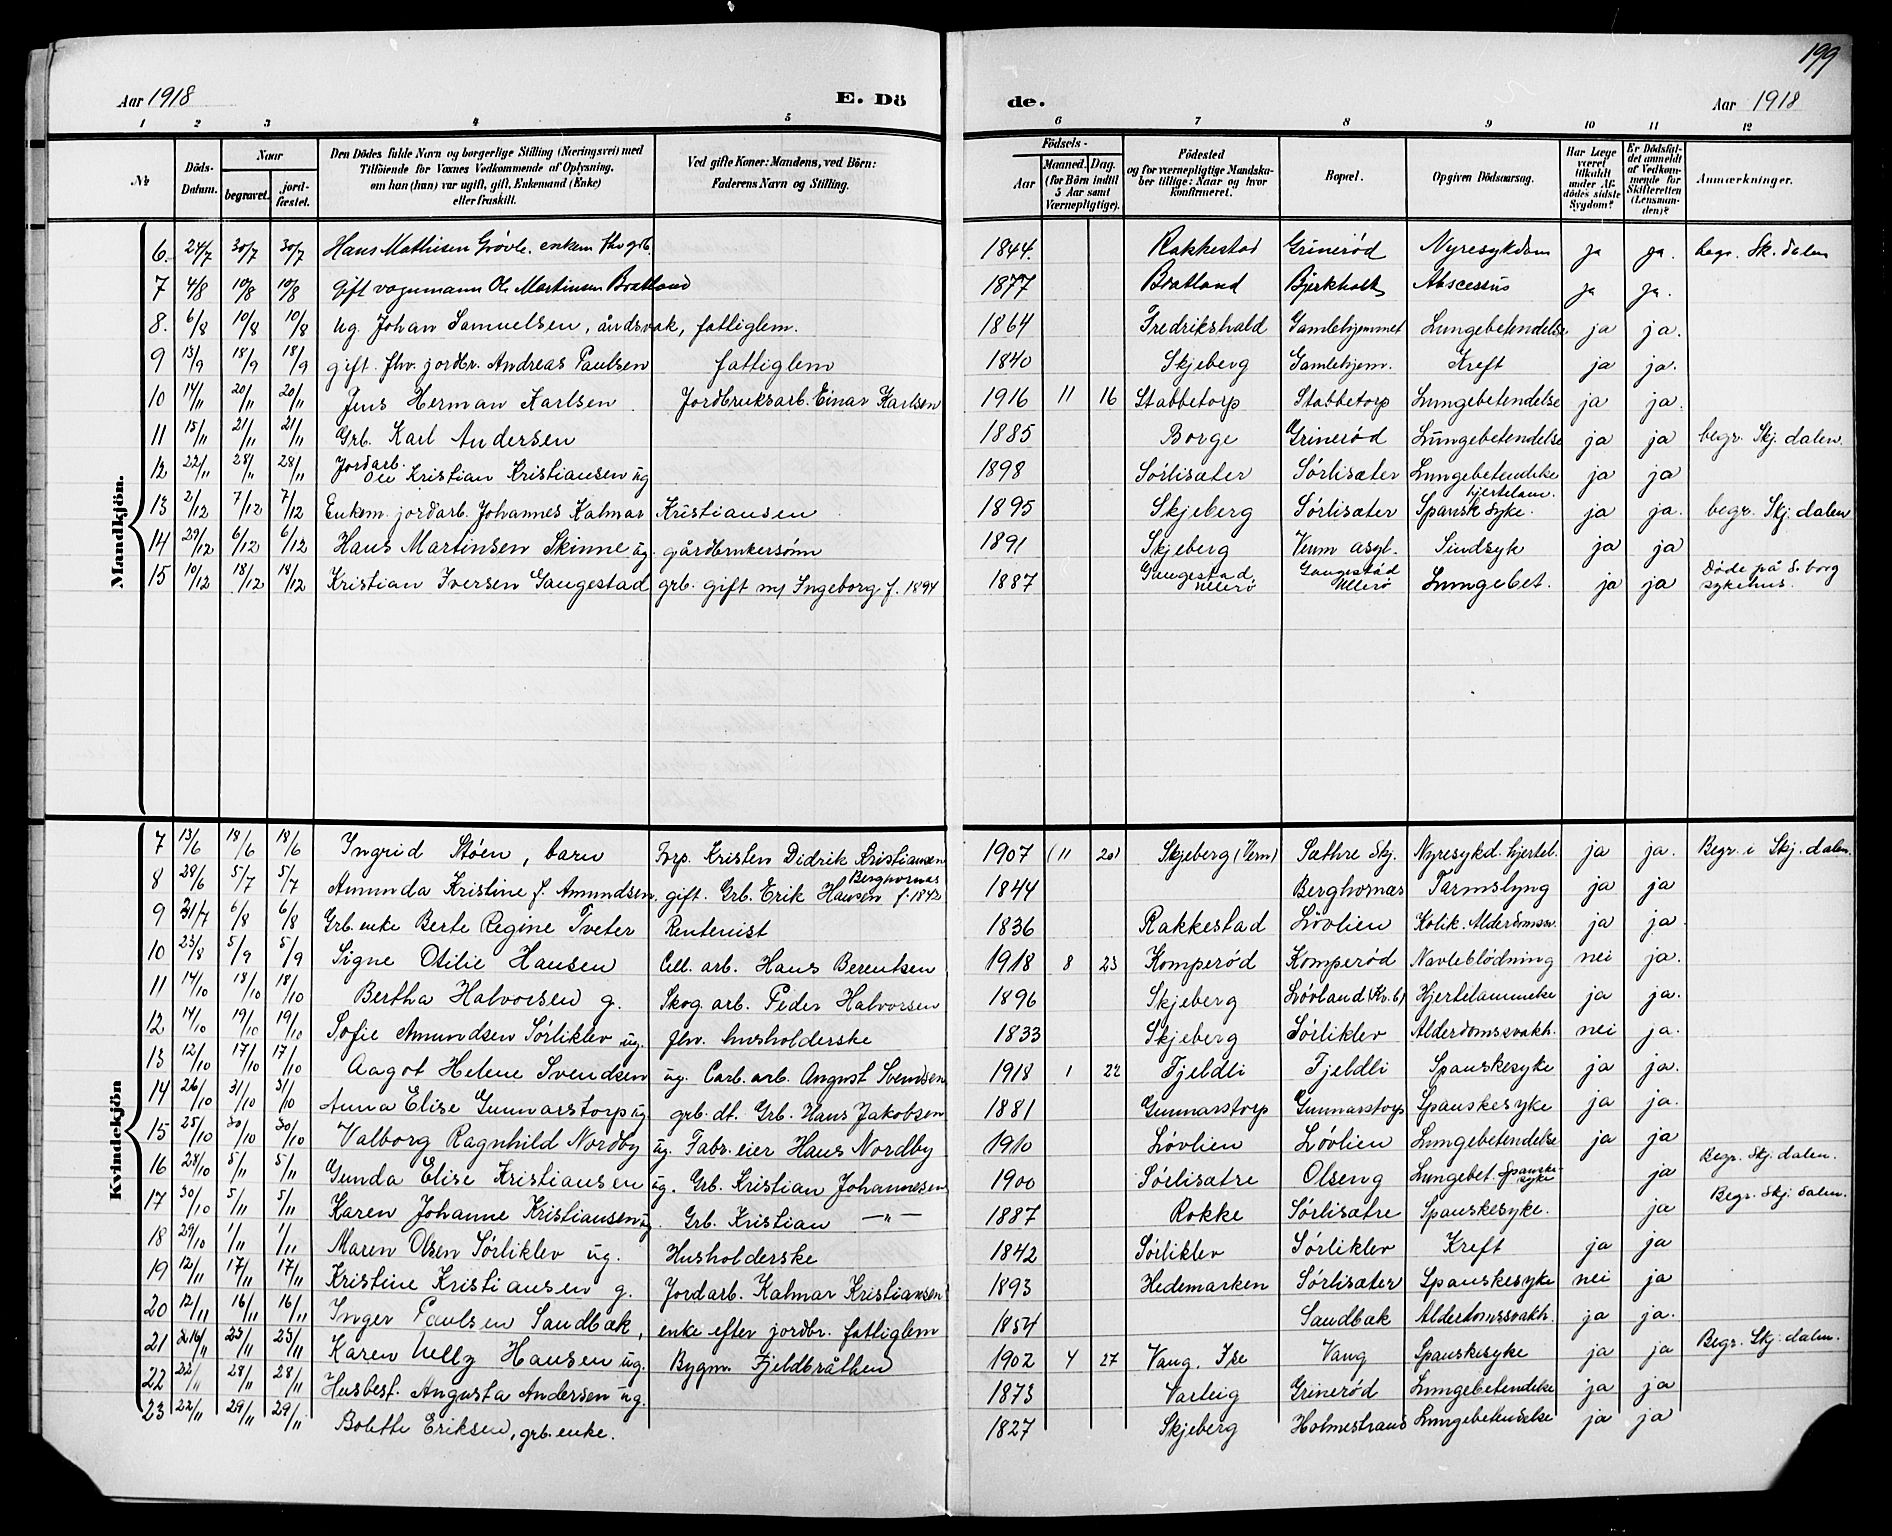 199
Aar 1918 E. Dö de. Aar 1918
1 2 3 4 5 6 7 8 9 10 11 12
№
Döds-Datum.
Naar
begravet.
jord-fæstet.
Den Dödes fulde Navn og borgerlige Stilling (Næringsvei) med Tilföiende for Voxnes Vedkommende af Oplysning, om han (hun) var ugift, gift, Enkemand (Enke) eller fraskilt.
Ved gifte Koner: Mandens, ved Börn: Faderens Navn og Stilling.
Födsels-
Aar
Maaned. Dag.
(for Börn indtil 5 Aar samt Værnepligtige).
Födested og for værnepligtige Mandskaber tillige: Naar og hvor konfirmeret.
Bopæl.
Opgiven Dödsaarsag.
Har Læge været tilkaldt under Afdödes sidste Sygdom?
Er Dödsfaldet anmeldt af Vedkommende for Skifteretten (Lensmanden)?
Anmærkninger.
Mandkjön.
6. 24/7 30/7 30/7 Hans Mathisen Grövle. enkem. fhv grb. 1844. Rakkestad Grinerød Nyresykdom ja ja. begr. Sk. dalen
7 4/8 10/8 10/8 Gift vognmann Ole Martinsen Bratland 1877 Bratland Bjerkholt Abscessus ja ja.
8. 6/8 10/8 10/8 ug. Johan Samuelsen, åndsvak, fatliglem. 1864 Fredrikshald Gamlehjemmet Lungebetendelse ja ja.
9 13/9 18/9 18/9 gift. fhv. jordbr. Andreas Paulsen fattiglem 1840 Skjeberg Gamlehjem. Kreft ja ja.
10 14/11 20/11 20/11 Jens Herman Karlsen Jordbruksarb. Einar Karlsen 1916 11 16 Stabbetorp Stabbetorp Lungebetendelse ja ja.
11 15/11 21/11 21/11 Grb. Karl Andersen 1885 Borge Grinerød Lungebetendelse ja ja begr. Skj. dalen.
12 22/11 28/11 28/11 Jordarb. Ole Kristian Kristiansen ug 1898 Sörlisæter Sörlisæter Lungebetendelse ja ja
13 2/12 7/12 7/12 Enkem. jordarb. Johannes Kalmar Kristiansen 1895 Skjeberg Sörlisæter Spansk Syke. hjertelam. ja ja. begr. Skj. dalen
14 29/12 6/12 6/12 Hans Martinsen Skinne ug. gårdbrukersönn 1891 Skjeberg Veum asyl. Sindsyk ja ja
15 10/12 18/12 18/12 Kristian Iversen Gaugestad grb. gift m/ Ingeborg f. 1894 1887 Gaugestad, Ullerø Gaugestad Ullerø Lungebet. ja ja Döde på S. borg sykehus.
Kvindekjön
7 13/6 18/6 18/6 Ingrid Stöen, barn Forp. Kristen Didrik Kristiansen 1907 (11 20) Skjeberg (Vem) Sæthre Skj. Nyresykd. hjerteb. ja ja. Begr. i Skj. dalen.
8 28/6 5/7 5/7 Amunda Kristine f. Amundsen, gift. Grb. Erik Hansen Berghornæs f. 1842 1844 Berghornæs Tarmslyng ja ja
9 31/7 6/8 6/8 Grb. enke Berte Regine Tveter Rentenist 1836 Rakkestad Lövlien Kolik. Alderdomssv. ja ja.
10 23/8 5/9 5/9 Signe Otilie Hansen Cell. arb. Hans Berentsen 1918 8 23 Komperød Komperød Navleblödning nei ja.
11 14/10 18/10 18/10 Bertha Halvorsen g. Skog. arb. Peder Halvorsen 1896 Skjeberg Lövland (Kv. b) Hjertelammelse ja ja.
12 14/10 19/10 19/10 Sofie Amundsen Sörliklev ug. fhv. husholderske 1833 Skjeberg Sörliklev Alderdomssvakh. nei ja.
13 12/10 17/10 17/10 Aagot Helene Svendsen ug. Carb. arb. August Svendsen 1918 1 22 Fjeldli Fjeldli Spanskesyke ja ja.
14 26/10 31/10 31/10 Anna Elise Gunnarstorp ug grb. dt. Grb. Hans Jakobsen 1881 Gunnarstorp Gunnarstorp Spanskesyke ja ja.
15 25/10 30/10 30/10 Valborg Ragnhild Nordby ug. Fabr. eier Hans Nordby 1910 Lövlien Lövlien Lungebetendelse ja ja
16 28/10 5/11 5/11 Gunda Elise Kristiansen ug. Grb. Kristian Johannesen 1900 Sörlisætre Olseng Lungebet. Spanske-syke ja Begr. Skj. dalen.
17 30/10 5/11 5/11 Karen Johanne Kristiansen ug. Grb. Kristian —"— 1887 Rokke Sörlisætre Spanskesyke. ja Begr. Skj. dalen.
18 29/10 1/11 1/11 Maren Olsen Sörliklev ug. Husholderske 1842 Sörliklev Sörliklev Kreft ja ja
19 12/11 17/11 17/11 Kristine Kristiansen g. Jordarb. Kalmar Kristiansen 1893 Hedemarken Sörlisæter Spanskesyke nei ja
20 12/11 16/11 16/11 Inger Paulsen Sandbæk, enke efter jordbr. fatliglem 1854 Sandbæk Alderdomssvakh. ja ja.
21 16/11 23/11 23/11 Karen Nelly Hansen ug. Bygm. Fjeldbråthen 1902 4 27 Vang. Ise Vang Spanskesyke ja ja Begr. Skj. dalen.
22 22/11 28/11 28/11 Husbest. Augusta Andersen ug. 1873 Varteig Grinerød Lungebetendelse ja ja
23 22/11 29/11 29/11 Bolette Eriksen, grb. enke. 1827 Skjeberg Holmestrand Lungebetendelse ja ja